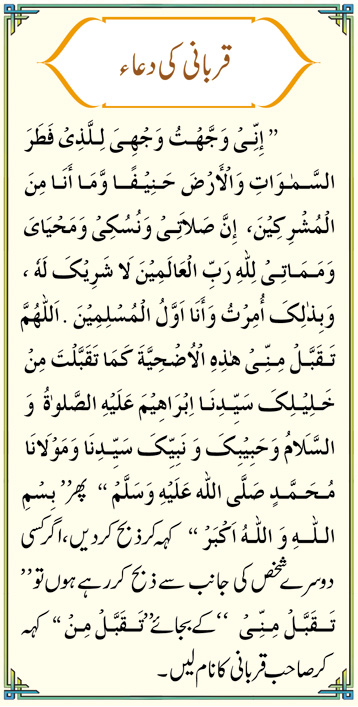 قربانی کی دعاء
” اِنِّیْ وَجَّهْتُ وَجْهِیَ لِلَّذِیْ فَطَرَ
السَّمٰوَاتِ وَالْاَرْضَ حَنِیْفًا وَّمَا اَنَا مِنَ
الْمُشْرِکِیْنَ، اِنَّ صَلَاتِیْ وَنُسُکِیْ وَمَحْیَایَ
وَمَمَاتِیْ لِلّٰهِ رَبِّ الْعَالَمِیْنَ لَا شَرِیْکَ لَهٗ ،
وَبِذٰلِکَ اُمِرْتُ وَاَنَا اَوَّلُ الْمُسْلِمِیْنَ . اَللّٰهُمَّ
تَقَبَّلْ مِنِّیْ هٰذِهِ الْاُضْحِیَّةَ کَمَا تَقَبَّلْتَ مِنْ
خَلِیْلِکَ سَیِّدِنَا اِبْرَاهِیْمَ عَلَیْهِ الصَّلٰوةُ وَ
السَّلَامُ وَحَبِیْبِکَ وَ نَبِیِّکَ سَیِّدِنَا وَمَوْلَانَا
مُحَمَّدٍ صَلَّی اللّٰه عَلَیْهِ وَسَلَّمْ “ پھر” بِسْمِ
اللّٰهِ وَ اللّٰهُ اَکْبَرْ “ کہہ کر ذبح کردیں، اگر کسی
دوسرے شخص کی جانب سے ذبح کررہے ہوں تو”
تَقَبَّلْ مِنِّیْ “ کے بجائے”تَقَبَّلْ مِنْ “ کہہ
کر صاحب قربانی کا نام لیں۔